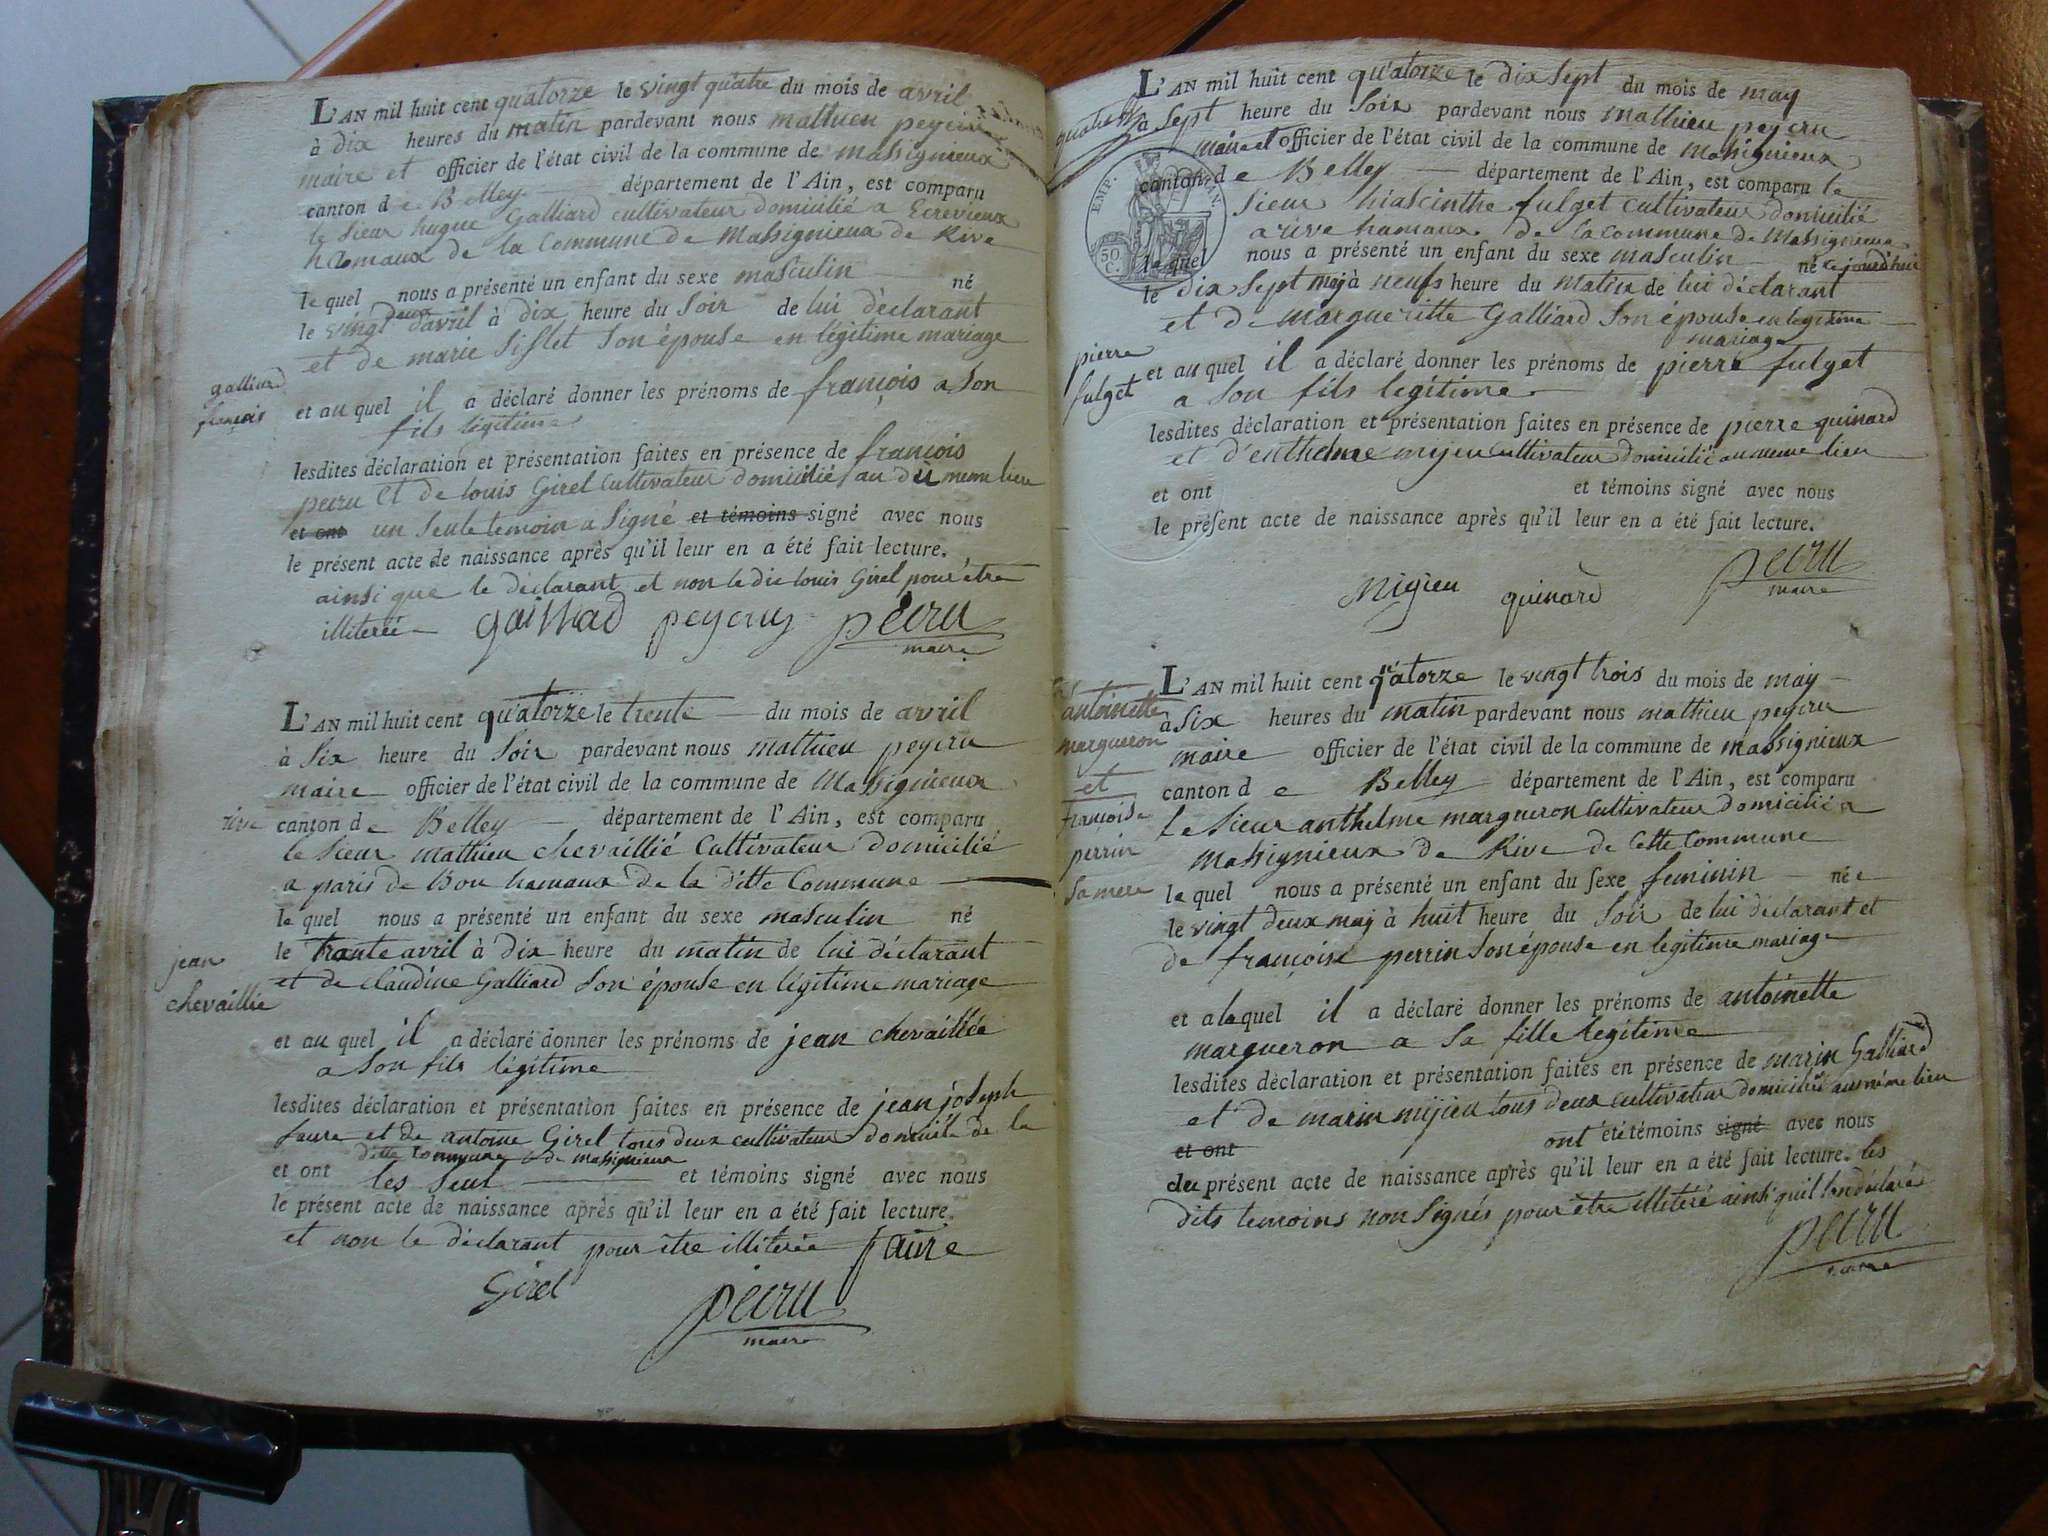 L'AN mil huit cent quatorze le vingt quatre du mois de avril
à dix heures du matin pardevant nous mathieu peycru
maire et officier de l'état civil de la commune de massignieux
canton de Belley département de l'Ain, est comparu
le sieur hugue Galliard cultivateur domicilié a Ecrevieux
hamaux de la Commune de Massignieux de Rive
le quel nous a présenté un enfant du sexe masculin né
le vingt deux d'avril à dix heure du soir de lui déclarant
et de marie Siflet son épouse en légitime mariage
galliard
françois
et au quel il a déclaré donner les prénoms de françois a son
fils légitime
lesdites déclaration et présentation faites en présence de françois
pecru et de louis Girel cultivateur domicilié au du meme lieu
et ont un seule temoin a signé et témoins signé avec nous
le présent acte de naissance après qu'il leur en a été fait lecture.
ainsi que le déclarant et non le dit louis Girel pour être
illiterée gaillard peycru pecru
maire
L'AN mil huit cent quatorze le trente du mois de avril
à six heure du soir pardevant nous mathieu peycru
maire officier de l'état civil de la commune de Massignieux
rive canton de Belley département de l'Ain, est comparu
le sieur mathieu chevaillié Cultivateur domicilié
a paris de Bon hamaux de la ditte Commune
le quel nous a présenté un enfant du sexe masculin né
le trante avril à dix heure du matin de lui déclarant
et de claudine Galliard son épouse en légitime mariage
jean
chevaillie
et au quel il a déclaré donner les prénoms de jean chevaillée
a son fils légitime
lesdites déclaration et présentation faites en présence de jean joseph
faure et de antoine Girel tous deux cultivateur domicilé de la
ditte Commune de massignieux
et ont les seul et témoins signé avec nous
le présent acte de naissance après qu'il leur en a été fait lecture.
et non le déclarant pour être illiterée faure
Girel pecru
maire
L'AN mil huit cent quatorze le dix sept du mois de may
à sept heure du soir pardevant nous mathieu peycru
maire et officier de l'état civil de la commune de massignieux
canton de Belley département de l'Ain, est comparu le
sieur hiascinthe fulget cultivateur domicilié
a rive hamaux de la commune de Massignieux
le quel nous a présenté un enfant du sexe masculin né ce jourd'hui
le dix sept may à neufs heure du matin de lui déclarant
et de margueritte Galliard son épouse en legitime
mariage
pierre
fulget
et au quel il a déclaré donner les prénoms de pierre fulget
a son fils legitime
lesdites déclaration et présentation faites en présence de pierre quinard
et d'enthelme mijeu cultivateur domicilié au meme lieu
et ont et témoins signé avec nous
le présent acte de naissance après qu'il leur en a été fait lecture.
Migieu quinard pecru
maire
EMP.
50
C.
L'AN mil huit cent quatorze le vingt trois du mois de may
à six heures du matin pardevant nous mathieu peycru
maire officier de l'état civil de la commune de massignieux
canton de Belley département de l'Ain, est comparu
le sieur anthelme margueron cultivateur domicilié a
massignieux de Rive de cette Commune
le quel nous a présenté un enfant du sexe feminin née
le vingt deux may à huit heure du soir de lui déclarant et
de françoise perrin son épouse en legitime mariage
antoinette
margueron
et
françoise
perrin
sa mere
et a laquel il a déclaré donner les prénoms de antoinette
margueron a sa fille legitime
lesdites déclaration et présentation faites en présence de marin Galliard
et de marin mijieu tous deux cultivateur domiciliés au même lieu
et ont ont été témoins signé avec nous
du présent acte de naissance après qu'il leur en a été fait lecture. les
dits temoins non signés pour être illitéré ainsi quil l'on déclaré
pecru
maire